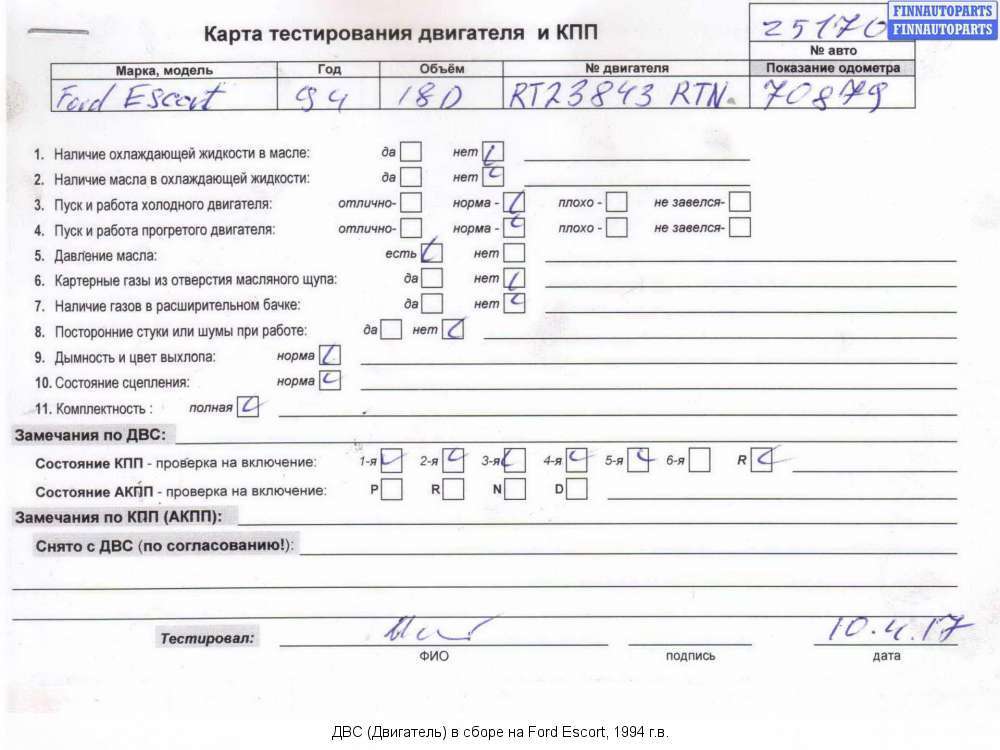 FINNAUTOPARTS
FINNAUTOPARTS
Карта тестирования двигателя и КПП
25170
№ авто
Марка, модель Год Объём № двигателя Показание одометра
Ford Escort 94 18D RT23843 RTN. 70879
1. Наличие охлаждающей жидкости в масле: да нет
2. Наличие масла в охлаждающей жидкости: да нет
3. Пуск и работа холодного двигателя: отлично- норма - плохо - не завелся-
4. Пуск и работа прогретого двигателя: отлично- норма - плохо - не завелся-
5. Давление масла: есть нет
6. Картерные газы из отверстия масляного щупа: да нет
7. Наличие газов в расширительном бачке: да нет
8. Посторонние стуки или шумы при работе: да нет
9. Дымность и цвет выхлопа: норма
10. Состояние сцепления: норма
11. Комплектность : полная
Замечания по ДВС:
Состояние КПП - проверка на включение: 1-я 2-я 3-я 4-я 5-я 6-я R
Состояние АКПП - проверка на включение: P R N D
Замечания по КПП (АКПП):
Снято с ДВС (по согласованию!):
Тестировал: 10.4.17
ФИО подпись дата
ДВС (Двигатель) в сборе на Ford Escort, 1994 г.в.